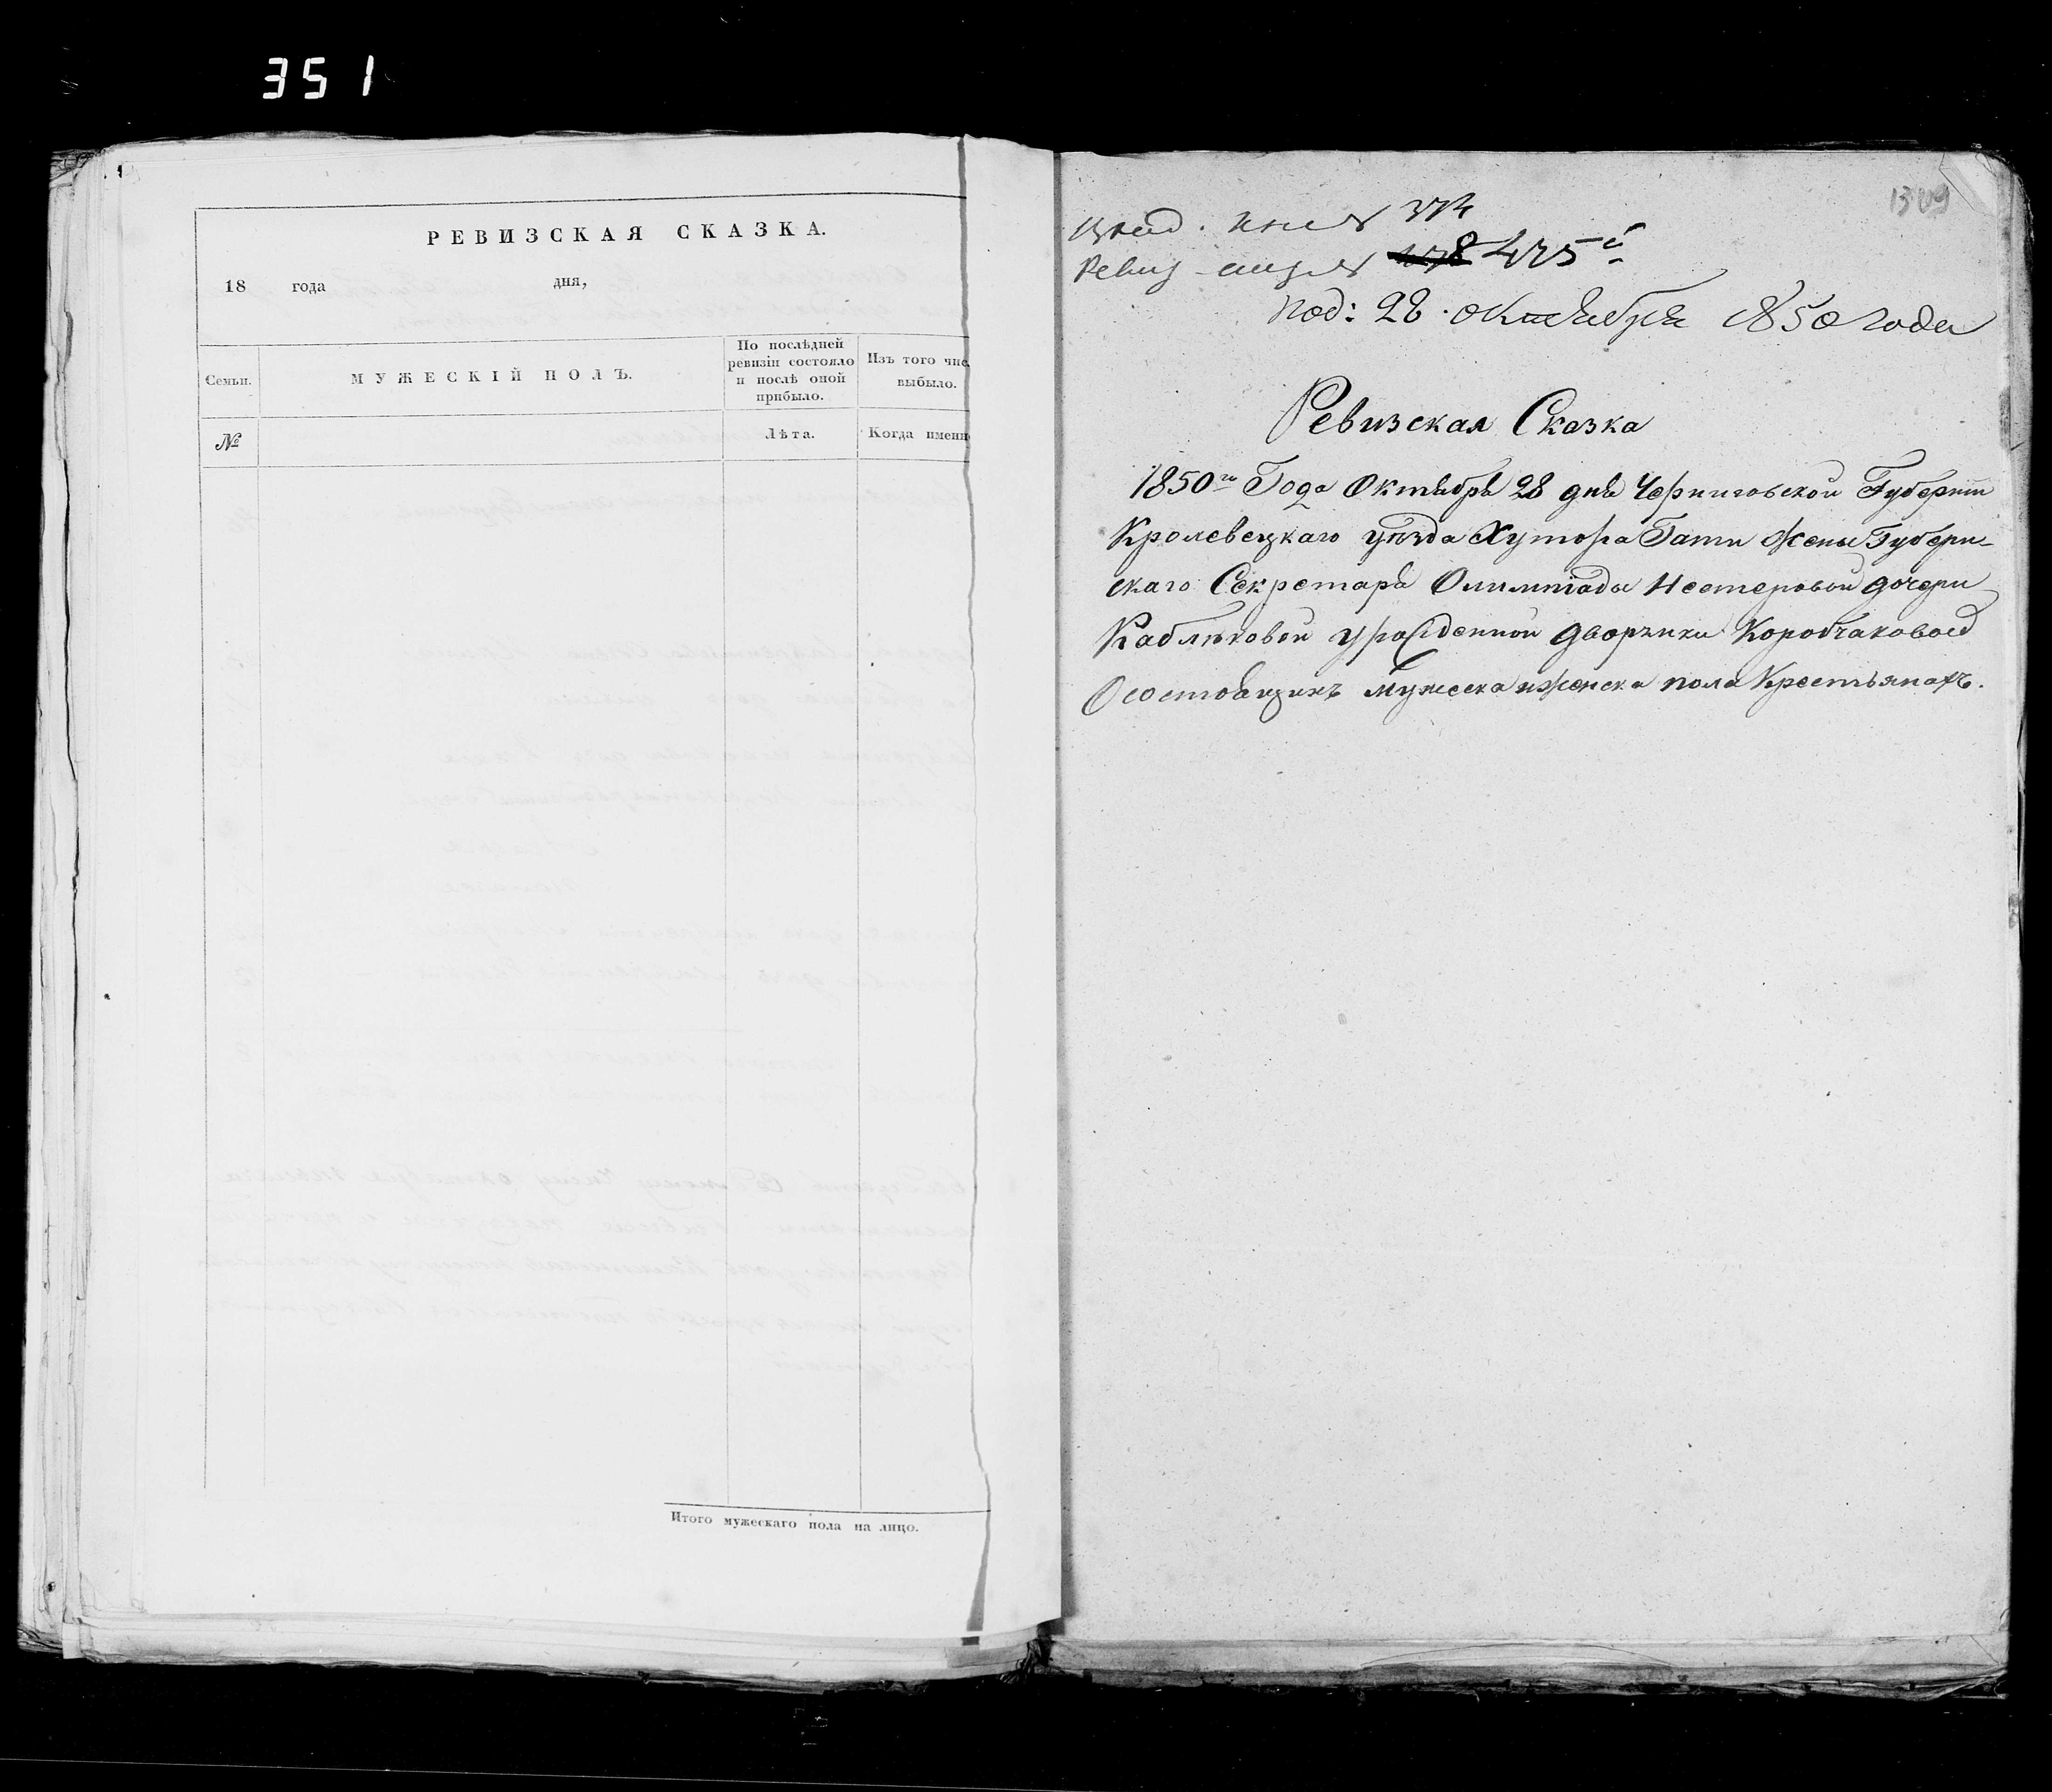 351
РЕВИЗСКАЯ СКАЗКА.
18 года дня,
Семьи.
МУЖЕСКІЙ ПОЛЪ.
По послѣдней ревизіи состояло и послѣ оной прибыло.
Изъ того чис выбыло.
№
Лѣта.
Когда именн
Итого мужескаго пола на лицо.
1309
475й
под: 28 октября 1850 года
Ревизская Сказка
1850го Года Октября 28 дня Черниговской Губерніи
Кролевецкаго уѣзда Хутора Гати Жены Губерн-
скаго Секретаря Олимпіады Нестеровой дочери
Каблуковой урожденной дворянки
О состоящихъ мужеска и женска пола Крестьянахъ.